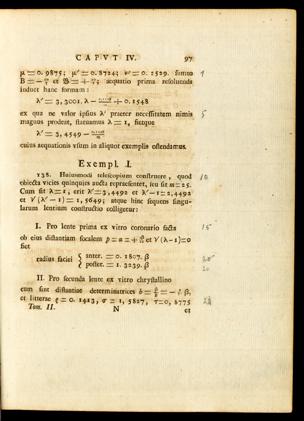 CAPVT IV. 97
μ = 0. 9875; μ' = 0. 8724; ν' = 0. 2529. sumto
aequatio prima resoluenda
induet hanc formam:
λ' = 3, 3001. λ − + 0. 1548
ex qua ne valor ipsius λ' praeter necessitatem nimis
magnus prodeat, statuamus λ = 1, fietque
λ' = 3, 4549 −
cuius aequationis vsum in aliquot exemplis ostendamus.
Exempl. I.
138. Huiusmodi telescopium construere, quod
obiecta vicies quinquies aucta repraesentet, seu sit m = 25.
Cum sit λ = 1, erit λ' = 3, 4492 et λ' − 1 = 2, 4492
et √(λ' − 1) = 1, 5649; atque hinc sequens singu-
larum lentium constructio colligetur:
I. Pro lente prima ex vitro coronario facta
ob eius distantiam focalem et √(λ − 1) = 0
fiet
radius faciei { anter. = 0. 1807. β
poster. = 1. 3239. β
II. Pro secunda lente ex vitro chrystallino
cum sint distantiae determinatrices
et litterae ϱ = 0. 1413, σ = 1, 5827, τ = 0, 8775
Tom. II. N et